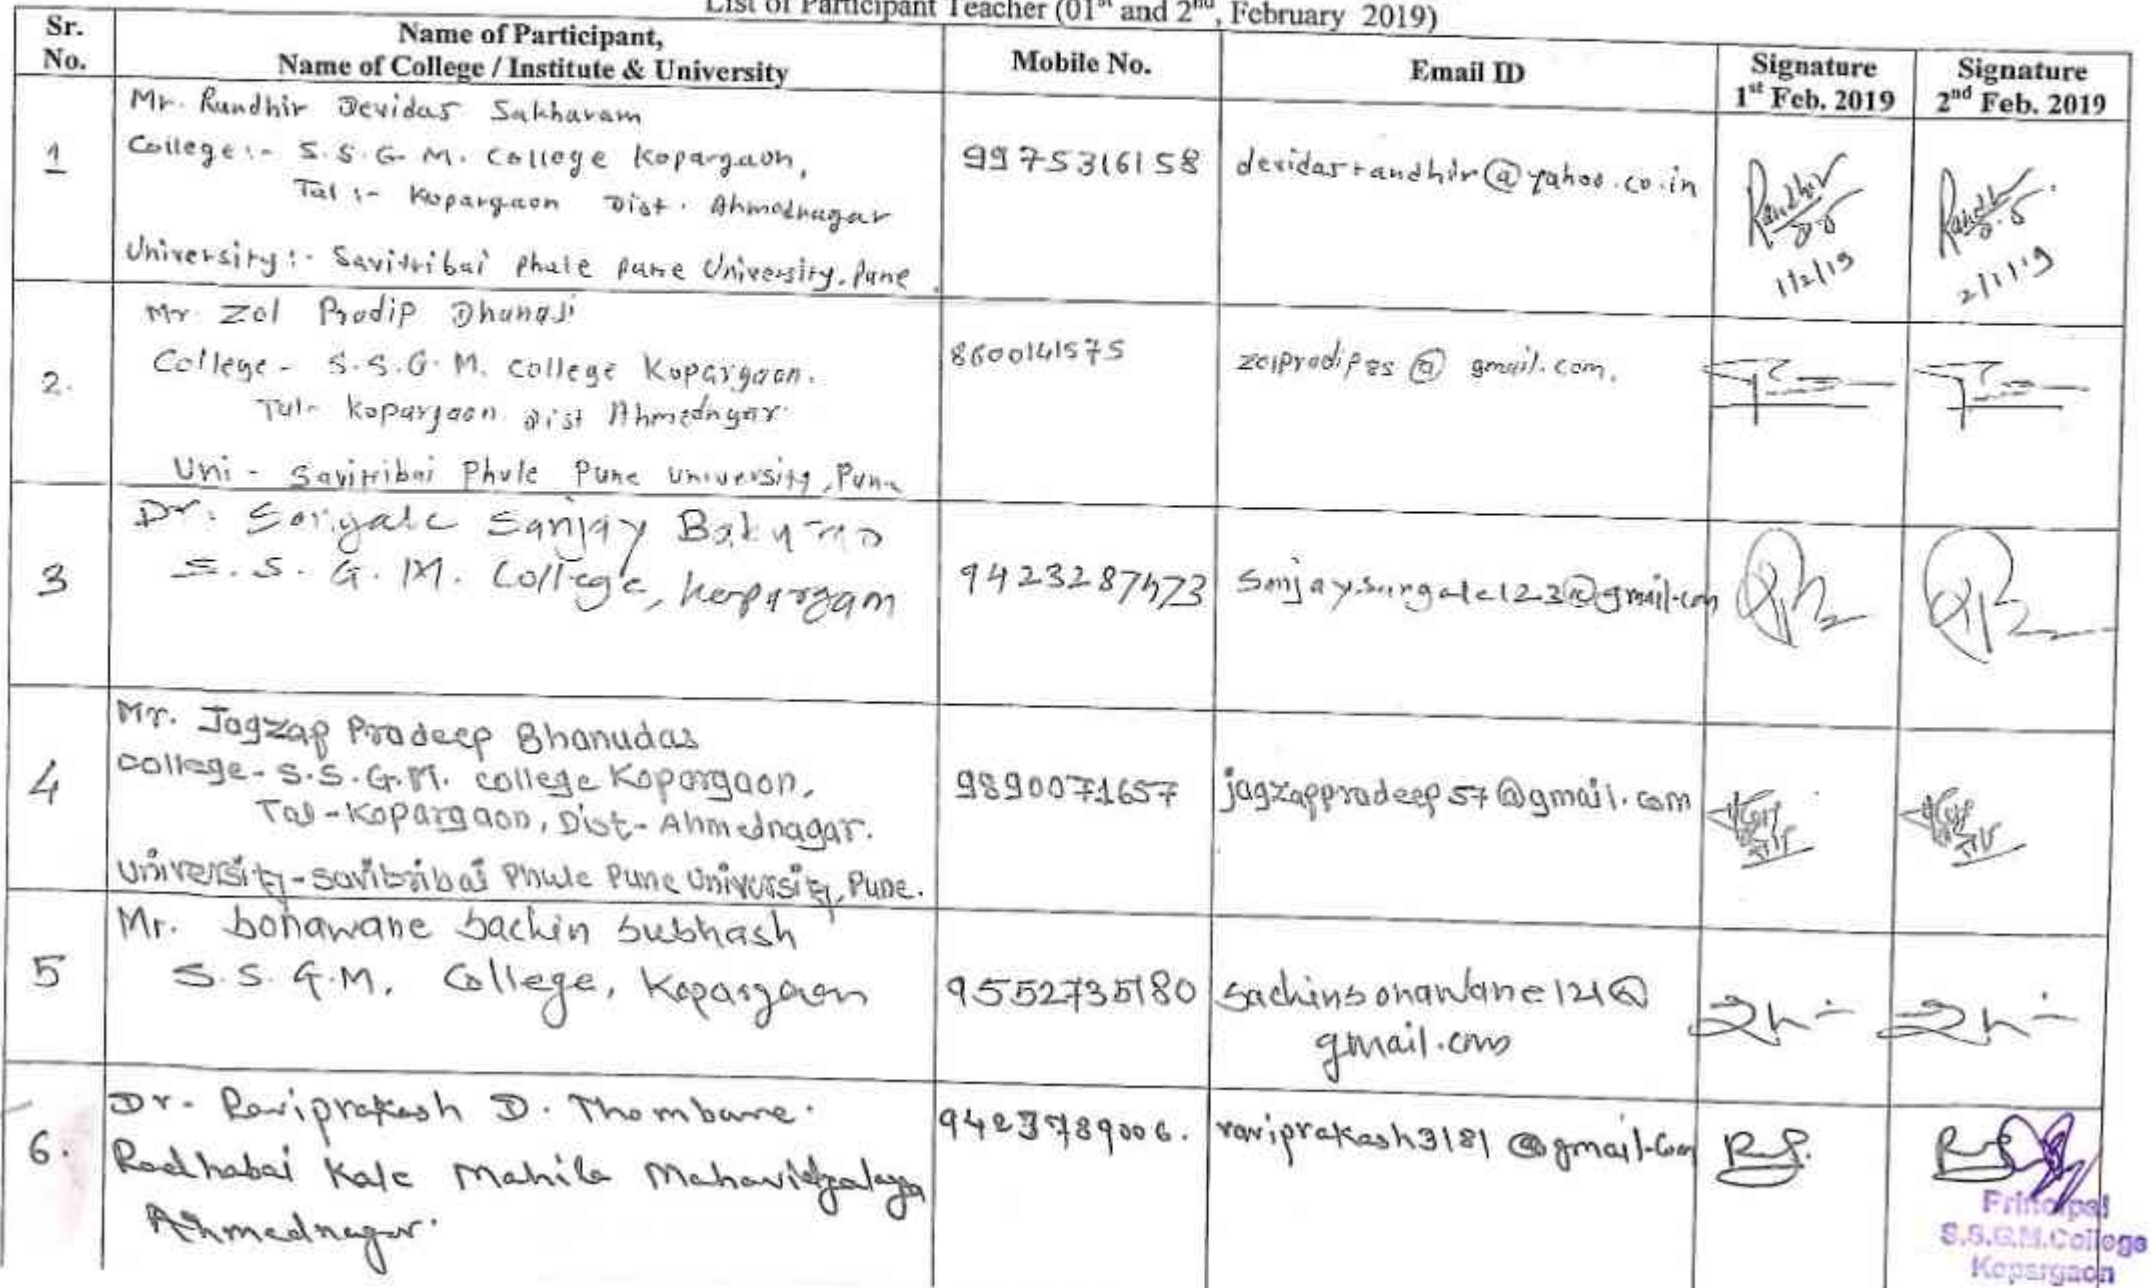 List of Participant Teacher (01st and 2nd, February 2019)
Sr. No.
Name of Participant,
Name of College / Institute & University
Mobile No.
Email ID
Signature
1st Feb. 2019
Signature
2nd Feb. 2019
1
Mr. Randhir Devidas Sakharam
College:- S.S.G.M. College Kopargaon,
Tal:- Kopargaon Dist. Ahmednagar
University:- Savitribai Phule Pune University, Pune
9975316158
devidasrandhir@yahoo.co.in
Randhir
1/2/19
2/2/19
2.
Mr. Zol Pradip Dhanaji
College- S.S.G.M. College Kopargaon.
Tal- Kopargaon Dist Ahmednagar
Uni - Savitribai Phule Pune University, Pune
8600141575
zolpradip85@gmail.com.
3
Dr. Sangale Sanjay
S.S.G.M. College, Kopargaon
9423287473
sanjaysangale123@gmail.com
4
Mr. Jagzap Pradeep Bhanudas
College- S.S.G.M. College Kopargaon,
Tal-Kopargaon, Dist-Ahmednagar.
University-Savitribai Phule Pune University, Pune.
9890071657
jagzappradeep57@gmail.com
5
Mr. Sonawane Sachin Subhash
S.S.G.M. College, Kopargaon
9552735180
sachinsonawane121@
gmail.com
6.
Dr. Raviprakash D. Thombare.
Radhabai Kale Mahila Mahavidyalaya
Ahmednagar.
9423789006.
raviprakash3181@gmail.com
Principal
S.S.G.M.College
Kopargaon